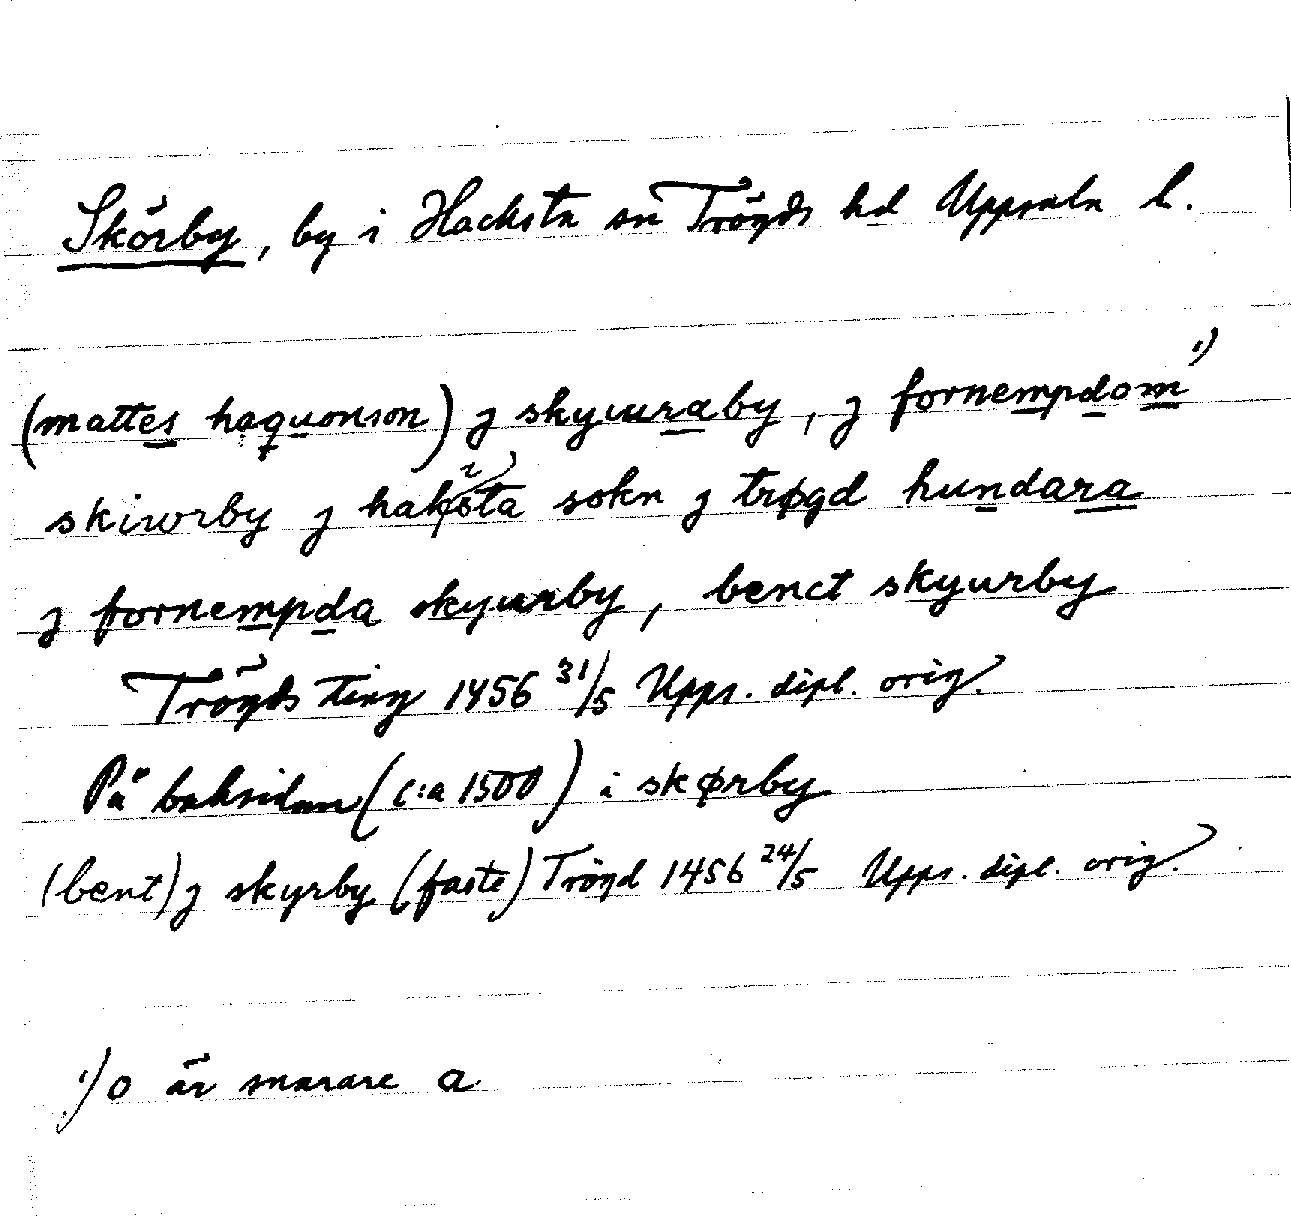 Skörby, by i Hacksta sn Trögds hd Uppsala l.
(mattes haquonson) j skywraby, j fornempdom 1)
skiworby j haksta sokn j trøgd hundara
j fornempda skywrby, benct skyurby
Trögds ting 1456 31/5 Upps. dipl. orig.
På baksidan (c:a 1500) i skørby
(bent) j skyrby (faste) Trögd 1456 24/5 Upps. dipl. orig.
1) o är snarare a